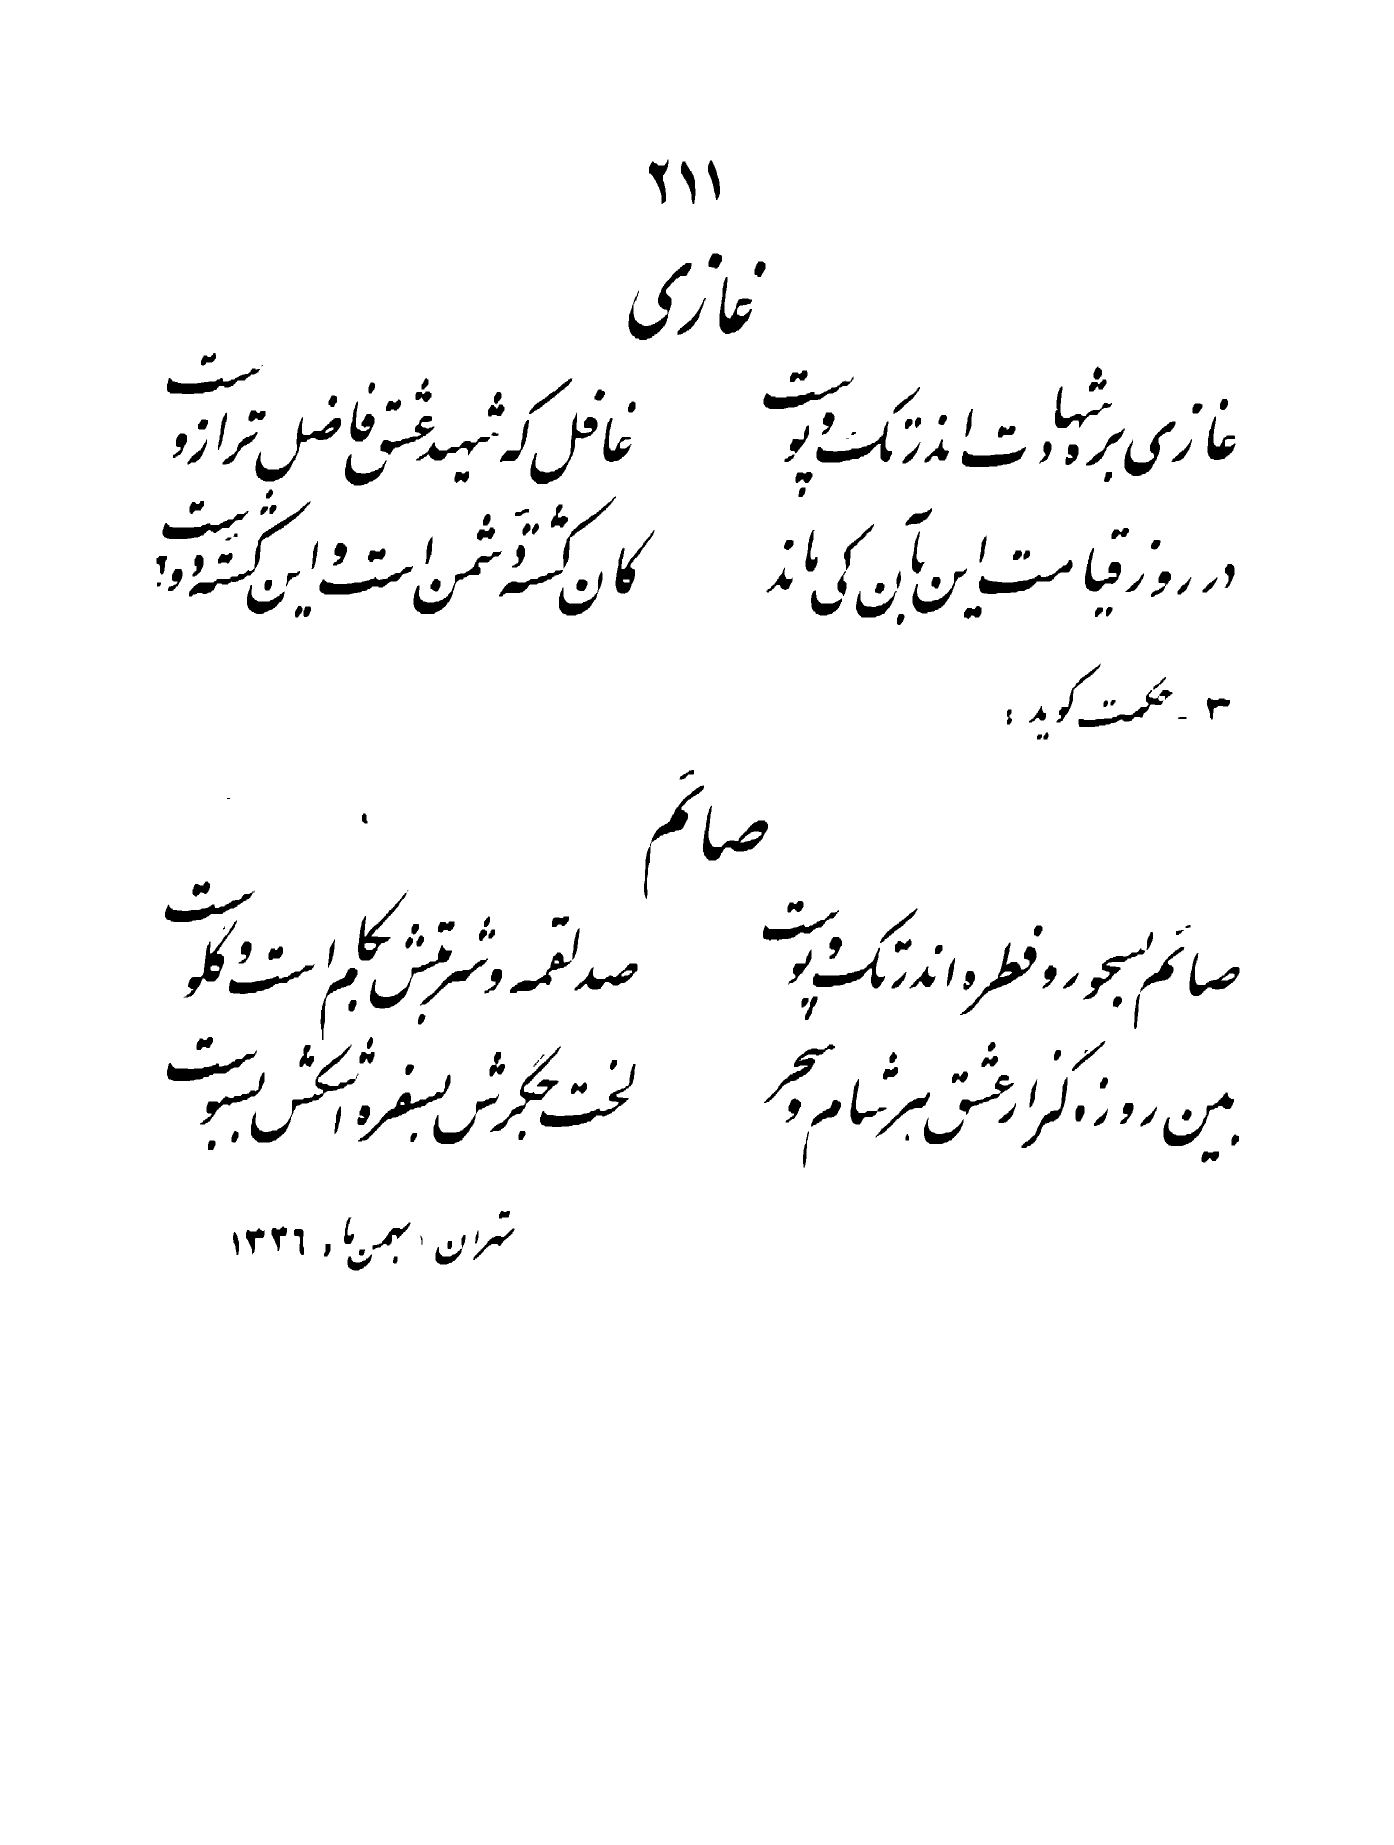 ۲۱۱
غازی
غازی بره شهادت اندر تک و پوست غافل که شهید عشق فاضل تر ازوست
در روز قیامت این بآن کی ماند کان کشتهٔ دشمن است و این کشتهٔ دوست؟
۳ - حکمت گوید :
صائم
صائم بسحور و فطره اندر تک و پوست صد لقمه و شربتش بکام است و گلوست
بین روزه گزار عشق هر شام و سحر لخت جگرش بسفره اشکش بسبوست
تهران، بهمن ماه ۱۳۳۶